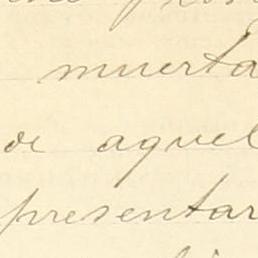 muerta
de aquel
presentar